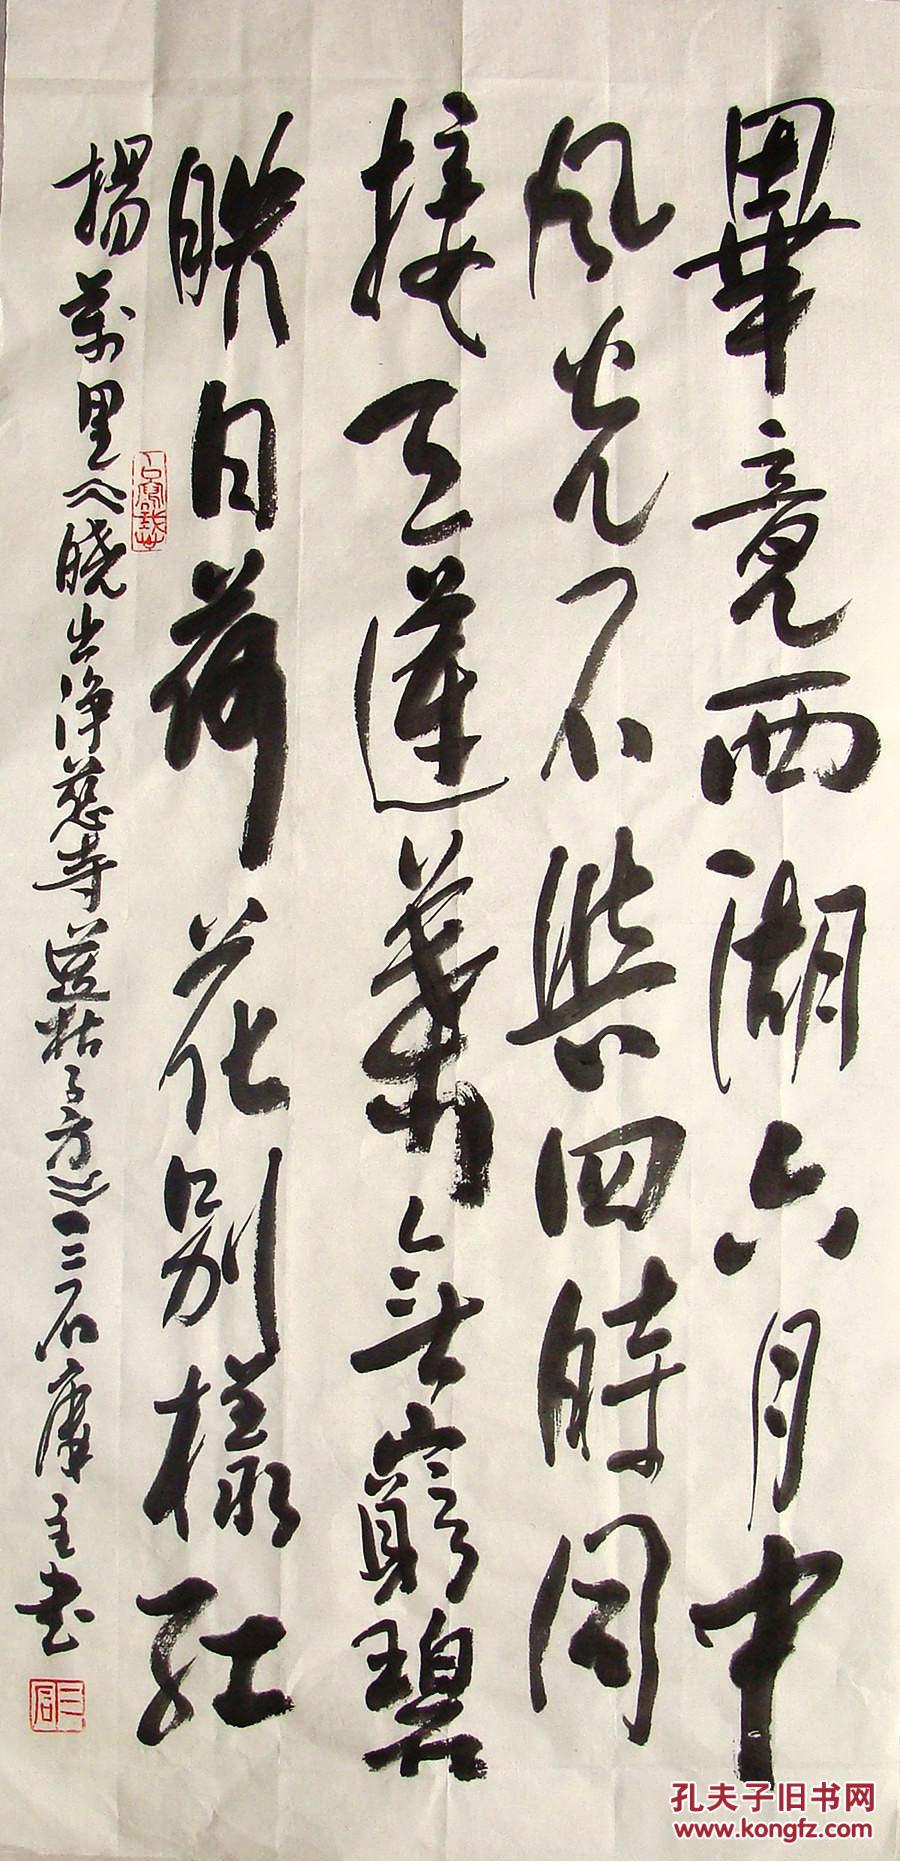 畢竟西湖六月中
風光不與四時同
接天蓮葉無窮碧
映日荷花別樣紅
楊萬里《曉出淨慈寺送林子方》三石庵主書
三石
孔夫子旧书网
www.kongfz.com